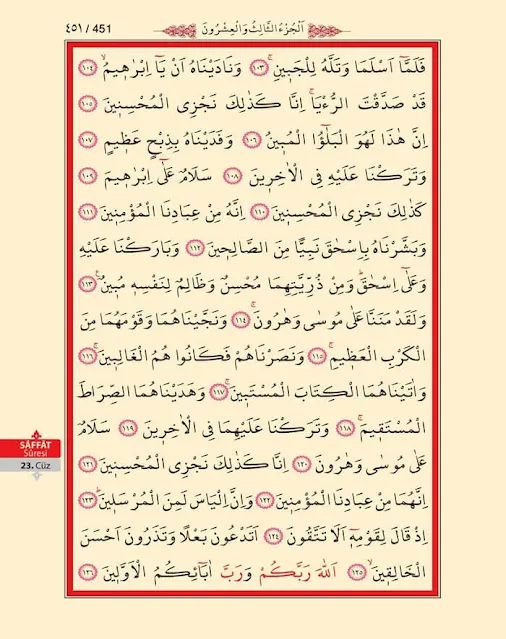 ٤٥١ / 451
اَلْجُزْءُ الثَّالِثُ وَالْعِشْرُونَ
فَلَمَّٓا اَسْلَمَا وَتَلَّهُ لِلْجَب۪ينِۚ ﴿١٠٣﴾ وَنَادَيْنَاهُ اَنْ يَٓا اِبْرٰه۪يمُۙ ﴿١٠٤﴾
قَدْ صَدَّقْتَ الرُّءْيَاۚ اِنَّا كَذٰلِكَ نَجْزِي الْمُحْسِن۪ينَ ﴿١٠٥﴾
اِنَّ هٰذَا لَهُوَ الْبَلٰٓؤُا الْمُب۪ينُ ﴿١٠٦﴾ وَفَدَيْنَاهُ بِذِبْحٍ عَظ۪يمٍ ﴿١٠٧﴾
وَتَرَكْنَا عَلَيْهِ فِي الْاٰخِر۪ينَ ﴿١٠٨﴾ سَلَامٌ عَلٰٓى اِبْرٰه۪يمَ ﴿١٠٩﴾
كَذٰلِكَ نَجْزِي الْمُحْسِن۪ينَ ﴿١١٠﴾ اِنَّهُ مِنْ عِبَادِنَا الْمُؤْمِن۪ينَ ﴿١١١﴾
وَبَشَّرْنَاهُ بِاِسْحٰقَ نَبِيًّا مِنَ الصَّالِح۪ينَ ﴿١١٢﴾ وَبَارَكْنَا عَلَيْهِ
وَعَلٰٓى اِسْحٰقَۜ وَمِنْ ذُرِّيَّتِهِمَا مُحْسِنٌ وَظَالِمٌ لِنَفْسِه۪ مُب۪ينٌ۟ ﴿١١٣﴾
وَلَقَدْ مَنَنَّا عَلٰى مُوسٰى وَهٰرُونَۚ ﴿١١٤﴾ وَنَجَّيْنَاهُمَا وَقَوْمَهُمَا مِنَ
الْكَرْبِ الْعَظ۪يمِۚ ﴿١١٥﴾ وَنَصَرْنَاهُمْ فَكَانُوا هُمُ الْغَالِب۪ينَۚ ﴿١١٦﴾
وَاٰتَيْنَاهُمَا الْكِتَابَ الْمُسْتَب۪ينَۚ ﴿١١٧﴾ وَهَدَيْنَاهُمَا الصِّرَاطَ
الْمُسْتَق۪يمَۚ ﴿١١٨﴾ وَتَرَكْنَا عَلَيْهِمَا فِي الْاٰخِر۪ينَ ﴿١١٩﴾ سَلَامٌ
عَلٰى مُوسٰى وَهٰرُونَ ﴿١٢٠﴾ اِنَّا كَذٰلِكَ نَجْزِي الْمُحْسِن۪ينَ ﴿١٢١﴾
اِنَّهُمَا مِنْ عِبَادِنَا الْمُؤْمِن۪ينَ ﴿١٢٢﴾ وَاِنَّ اِلْيَاسَ لَمِنَ الْمُرْسَل۪ينَۜ ﴿١٢٣﴾
اِذْ قَالَ لِقَوْمِه۪ٓ اَلَا تَتَّقُونَ ﴿١٢٤﴾ اَتَدْعُونَ بَعْلًا وَتَذَرُونَ اَحْسَنَ
الْخَالِق۪ينَۙ ﴿١٢٥﴾ اَللّٰهَ رَبَّكُمْ وَرَبَّ اٰبَٓائِكُمُ الْاَوَّل۪ينَ ﴿١٢٦﴾
SÂFFÂT
Sûresi
23. Cüz